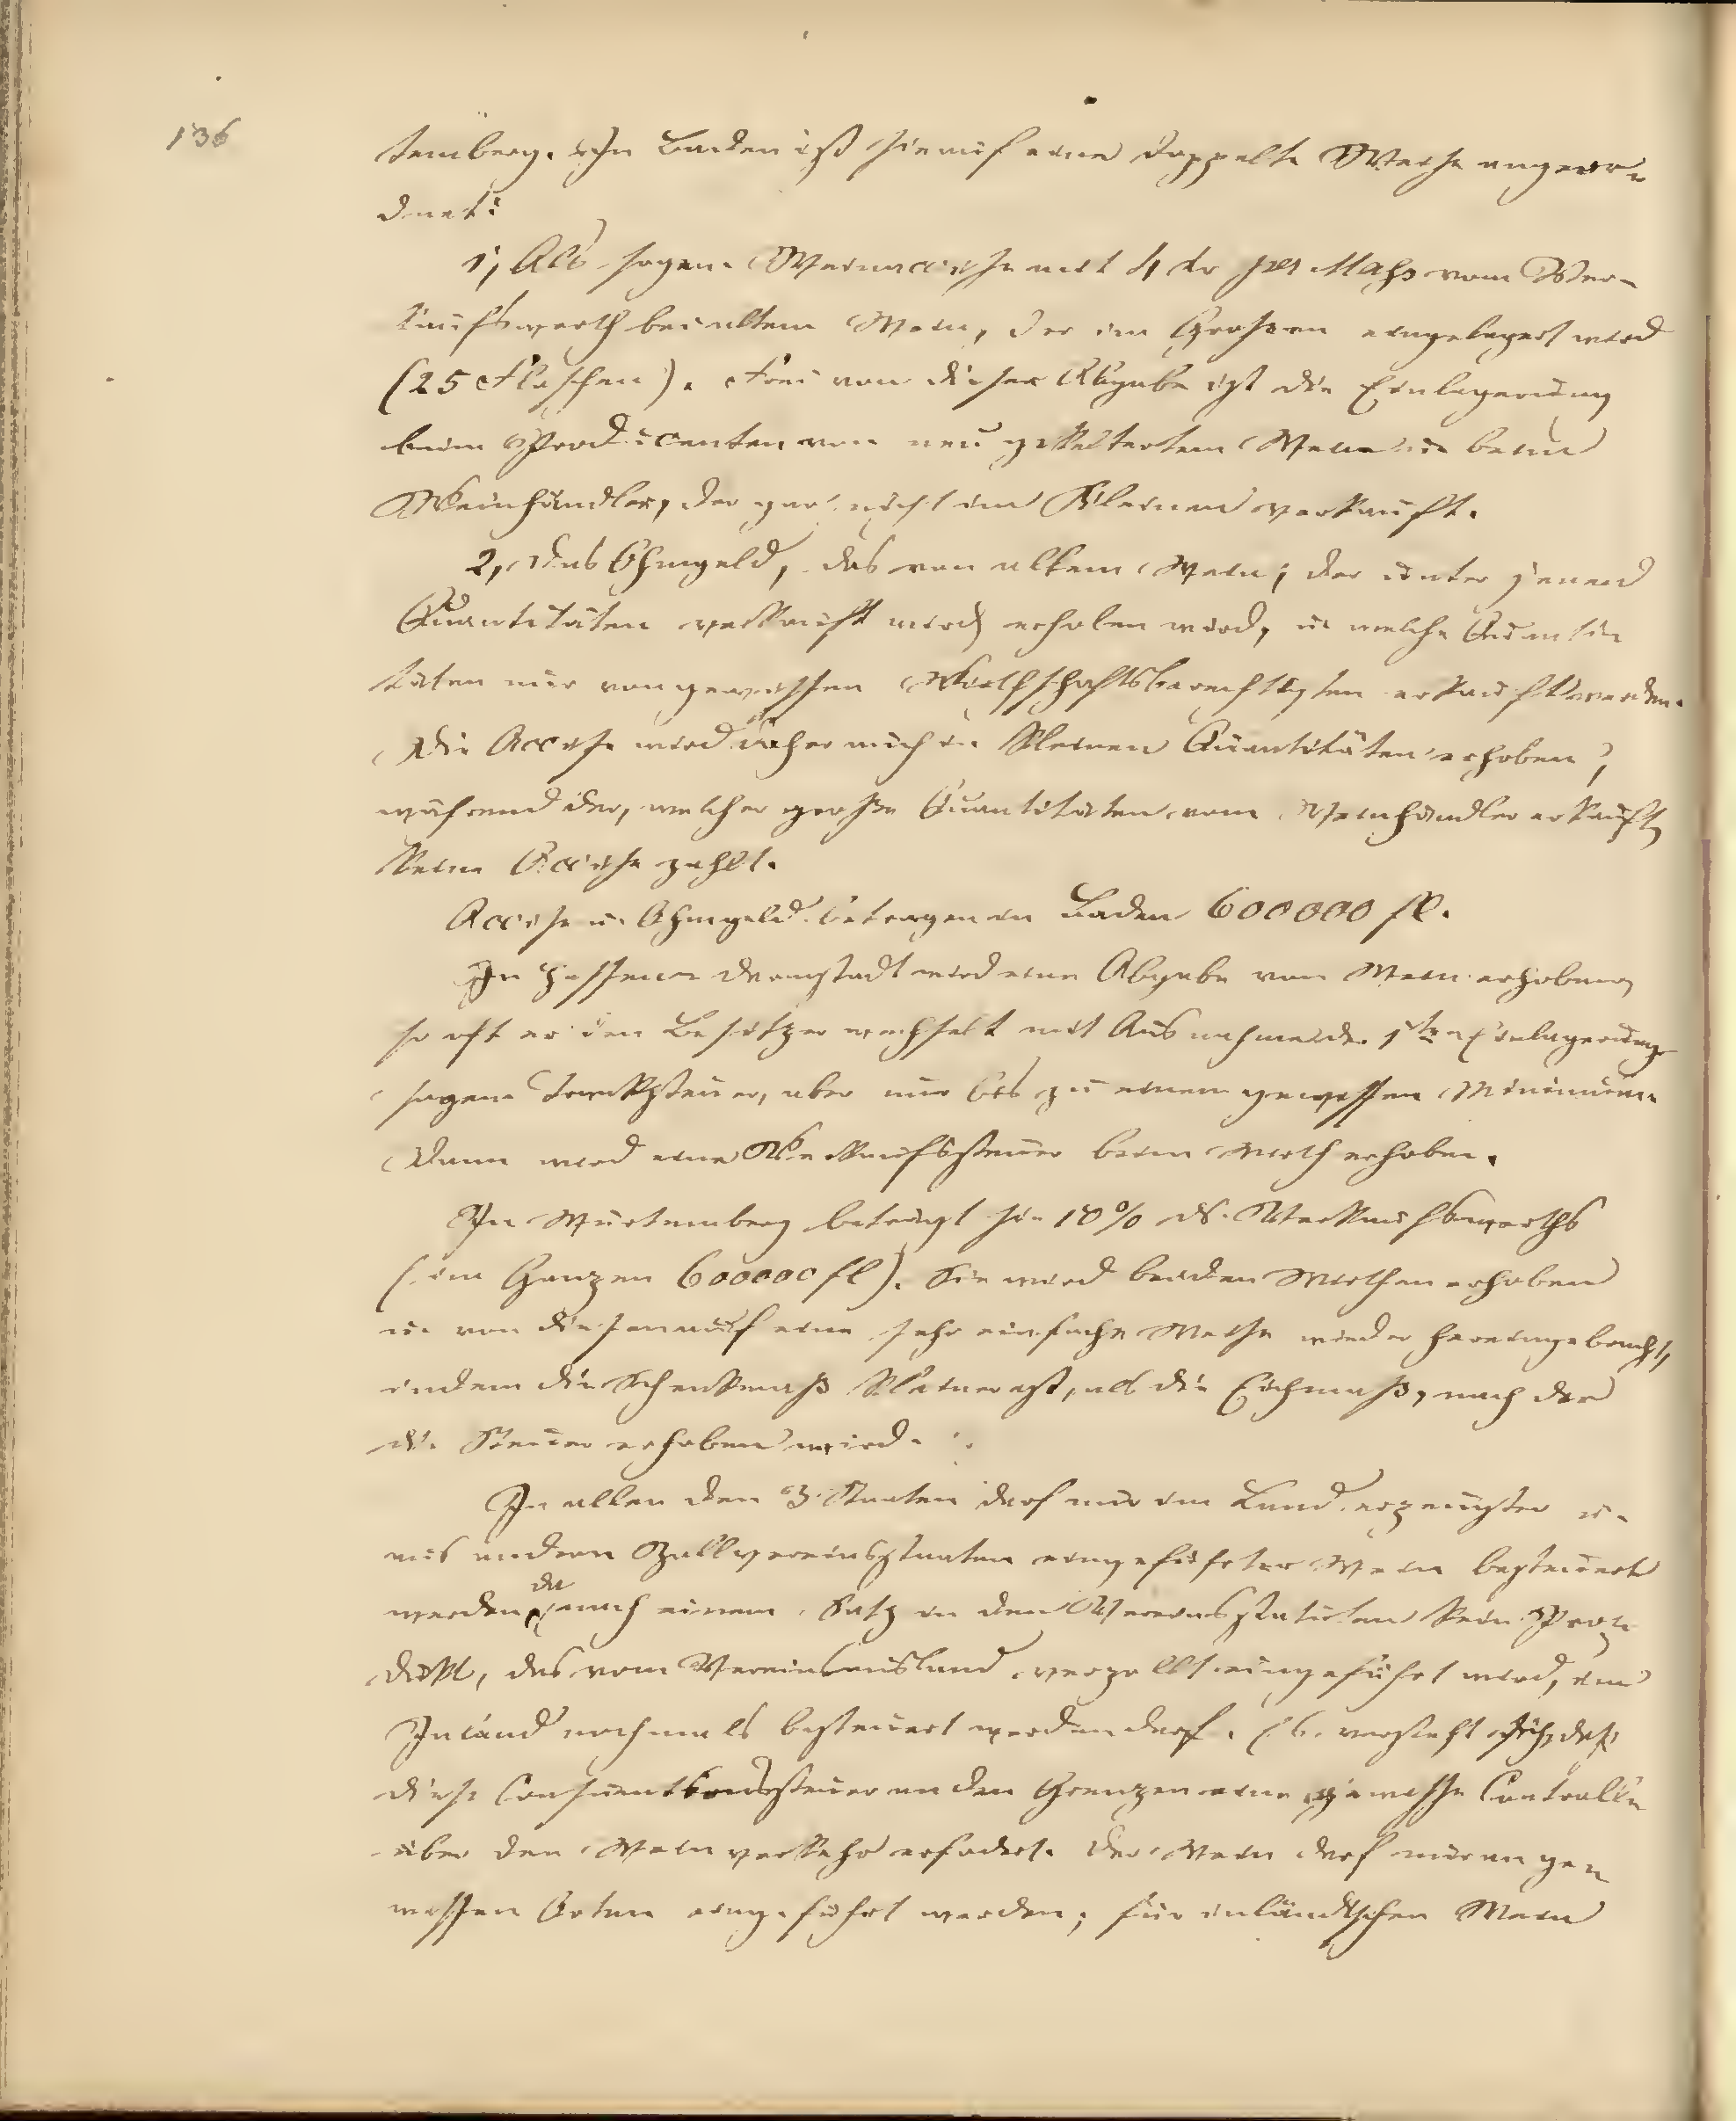 136
temberg. In Baden ist sie auf eine doppelte Weise angeor-
dnet:
1, Als sogen. Weinaccise mit 4 kr per Maß vom Ver-
kaufswerth bei altem Wein, der im Großen eingelagert wird
(25 Flaschen). Frei von dieser Abgabe ist die Einlagerung
beim Producenten von neu gekeltertem Wein u. beim
Weinhändler, der gar nicht im Kleinen verkauft.
2, Das Ohmgeld, das von altem Wein, der unter jenen
Quantitäten verkauft wird, erhoben wird, u. welche Quanti-
täten nur von gewissen Wirthschaftsberechtigten erkauft werden.
Die Accise wird daher auch in kleinen Quantitäten erhoben,
während der, welcher große Quantitäten vom Weinhändler erkauft,
keine Accise zahlt.
Accise u. Ohmgeld betragen in Baden 600000 fl.
In Hessen-Darmstadt wird eine Abgabe vom Wein erhoben,
so oft er den Besitzer wechselt mit Ausnahme der 1ten Einlagerung,
sogen. Tranksteuer, aber nur bis zu einem gewissen Minimum.
Dann wird eine Verkaufssteuer beim Wirth erhoben.
In Würtemberg beträgt sie 10% des Verkaufswerths
(im Ganzen 600000 fl). Sie wird bei den Wirthen erhoben
u. von diesen auf eine sehr einfache Weise wieder hereingebracht,
indem die Schenkmaß kleiner ist, als die Eichmaß, nach der
die Steuer erhoben wird.
In allen den 3 Staaten darf nur im Land erzeugter u.
aus andern Zollvereinsstaaten eingeführter Wein besteuert
werden, da nach einem Satz in den Vereinsstatuten kein Pro-
dukt, das vom Vereinsausland verzollt eingeführt wird, im
Inland nochmals besteuert werden darf. Es versteht sich, daß
diese Consumtionssteuer an den Grenzen eine gewisse Controlle
über den Weinverkehr erfodert. Der Wein darf nur an ge-
wissen Orten eingeführt werden; für inländischen Wein